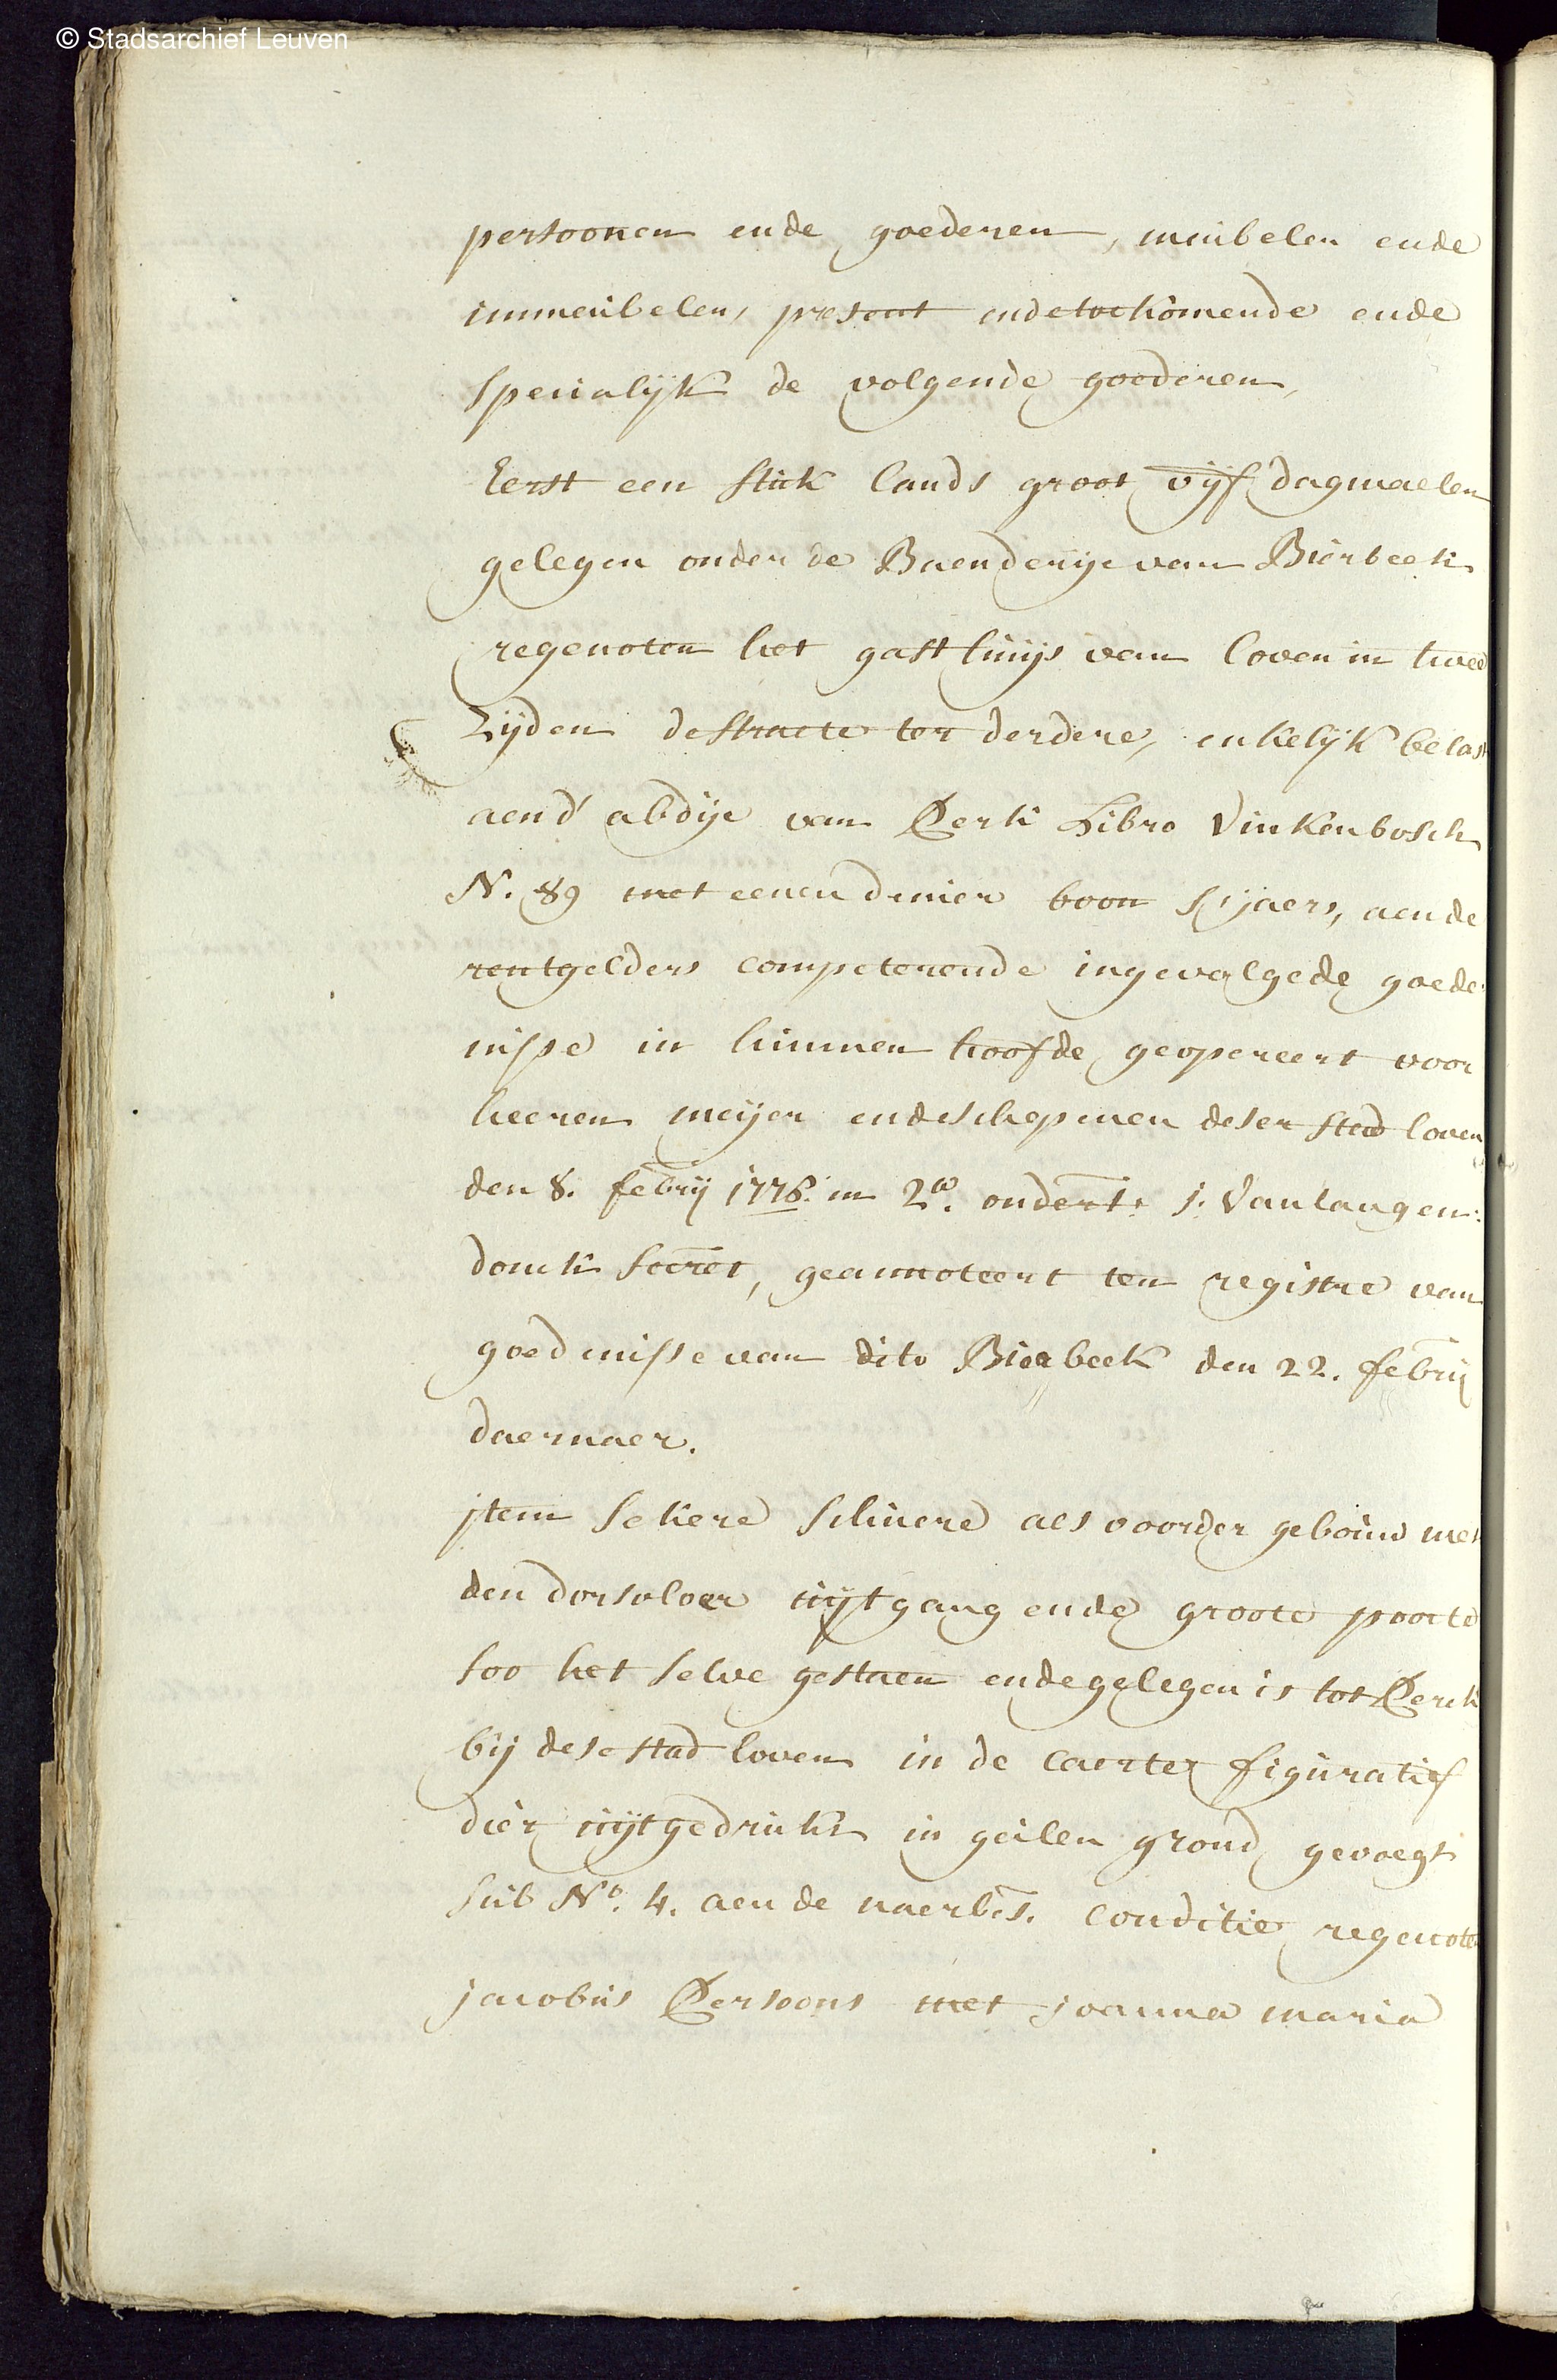 © Stadsarchief Leuven
persoonen ende goederen, meubelen ende
immeubelen, present ende toekomende ende
specialijk de volgende goederen,
Eerst een stuk lands groot vijf dagmaelen
gelegen onder de Baenderije van Bierbeek
regenoten het gasthuijs van loven in twee
zijden de straete ter derdere, enkelijk belast
aend' abdije van Perk Libro Vinkenbosch
N. 89 met eenen denier boon s'jaers, aen de
rentgelders competerende ingevolge de goede
nisse in hunnen hoofde geopereert voor
heeren meijer ende schepenen deser stad loven
den 8. febrij 1776. in 2a. ondert. j. Vanlangen:
donck secret, geannoteert ten registre van
goedenisse van dito Bierbeek den 22. febrij
daernaer.
jtem sekere schuere als voorder gebouw met
den dorsvloer uijtgang ende groote poorte
soo het selve gestaen ende gelegen is tot Perck
bij dese stad loven in de caerte figuratief
dier uijtgedrukt in geilen grond gevoegt
sub No. 4. aen de naerbes. conditie regenoten
jacobus Persoons met joanna maria